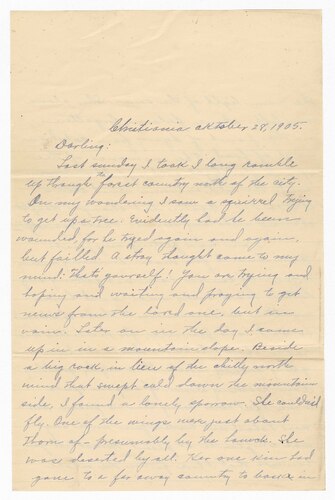 Christiania oktober 29, 1905.
Darling:
Last sunday I took I long ramble
up though the forest country north of the city.
On my wondering I saw a squirrel trying
to get up a tree. Evidently had he been
wounded, for he tryed again and again,
but failled. A stray thought came to my
mind: Thats yourself! You are trying and
hoping and waiting and praying to get
news from the loved one, but in
vain. Later on in the day I came
up in in a mountain slope. Beside
a big rock, in lieu of the chilly north
wind that swept cold down the mountain
side, I found a lonely sparrow. She couldnt
fly. One of the wings was just about
thorn of - presumably by the hawk. She
was deserted by all. Her one kin had
gone to a far away country to baske in